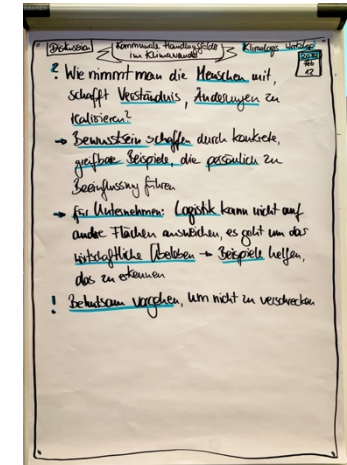 Diskussion
Kommunale Handlungsfelder
im Klimawandel
Workshop
Feb
12
? Wie nimmt man die Menschen mit,
schafft Verständnis, Änderungen zu
realisieren?
→ Bewusstsein schaffen durch konkrete,
greifbare Beispiele, die persönlich zu
Beeinflussung führen
→ für Unternehmen: Logistik kann nicht auf
andere Flächen ausweichen, es geht um das
wirtschaftliche Überleben → Beispiele helfen,
das zu erkennen
! Behutsam vorgehen, um nicht zu verschrecken